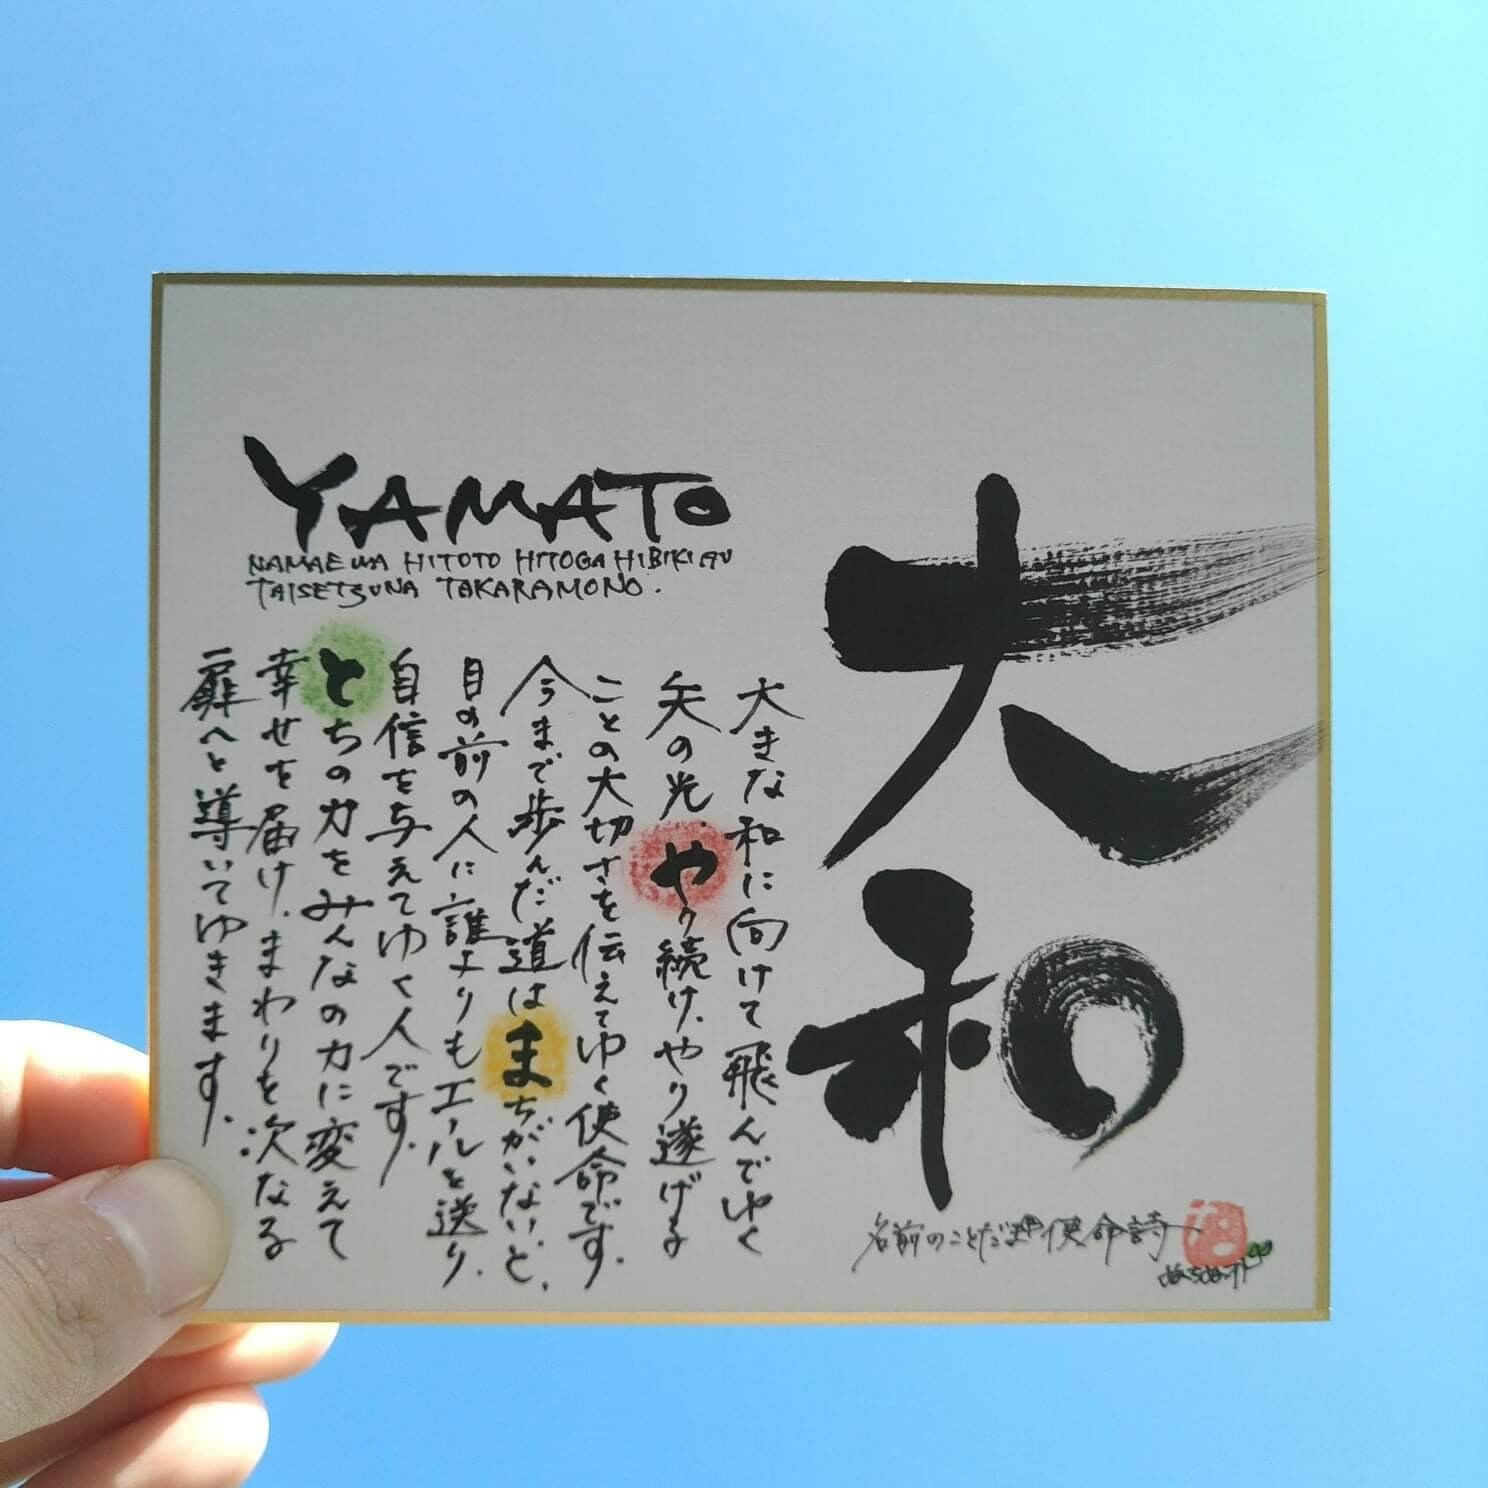 大和
YAMATO
NAMAE WA HITOTO HITOGA HIBIKI AU
TAISETSUNA TAKARAMONO.
大きな和に向けて飛んでゆく
矢の光。やり続け、やり遂げる
ことの大切さを伝えてゆく使命です。
今まで歩んだ道はまちがいないと、
目の前の人に誰よりもエールを送り、
自信を与えてゆく人です。
とちの力をみんなの力に変えて
幸せを届け、まわりを次なる
扉へと導いてゆきます。
名前のことだま 使命詩